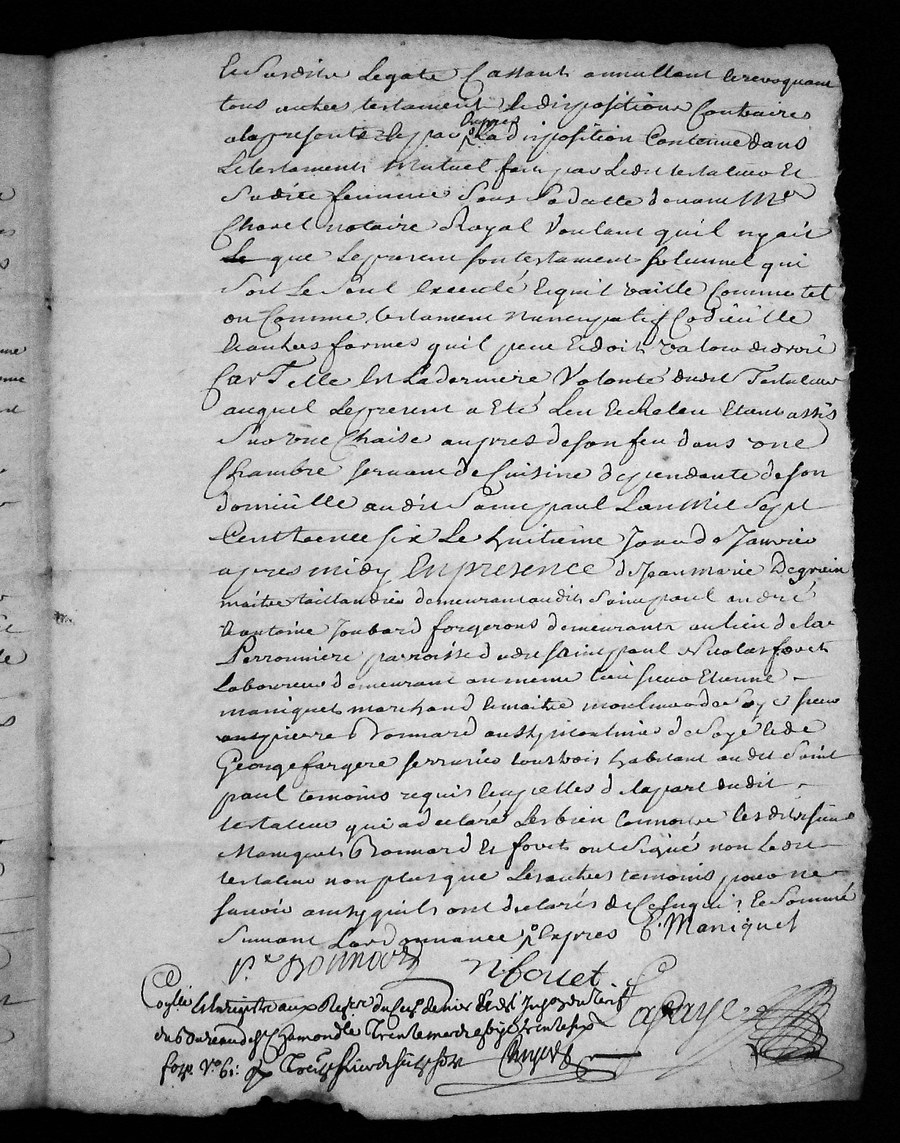 Et susdits legats Cassant annullant Et revoquant
tous autres testament Et dispositions Contraires
alapresente Et par Exprès la disposition Contenue dans
Le testament Mutuel fait par Ledit testateur Et
Sadite femme Sous Sa datte devant Me
Chavel notaire Royal Voulant quil ny ait
que Le present son testament solemnel qui
Soit Le Seul Executé Et quil vaille Comme tel
ou Comme testament nuncupatif Codicille
Et autres formes quil peut Et doit valoir de droit
Car Telle Est La derniere Volonté dudit Testateur
auquel Le present a Eté Leu Et Releu Etant assis
Sur vne Chaise aupres de son feu dans vne
Chambre servant de Cuisine dependante de son
domicille audit Saint paul Lan Mil Sept
Cent trente six Le huitieme Jour de Janvier
apres midy En presence de Jean marie Degrain
maitre taillandier demeurant audit Saint paul andré
Et antoine Joubard forgerons demeurants au lieu de la
Perronniere parroisse dudit saint paul Nicolas fovet
Laboureur demeurant au meme lieu sieur Etienne
maniquet marchand Et maitre moulineur de soye sieur
pierre Bonnard aussy moulinier de soye Et de
George fargere serrurier tous trois habitant audit Saint
paul temoins requis Et appellés de la part dudit
testateur qui a declaré Les bien Connoitre Lesdits sieurs
Maniquet Bonnard Et fovet ont Signé non Ledit
testateur non plus que Les autres temoins pour ne
scavoir ainsy quils ont declarés de Ce Enquis Et Sommé
Suivant Lordonnance p. Exprès E. Maniquet
p.re Bonnard n fovet
Collé Et Enregistré aux Registres Lafaye
du Bureau de St Chamond le Trente
fo. Vo 61: